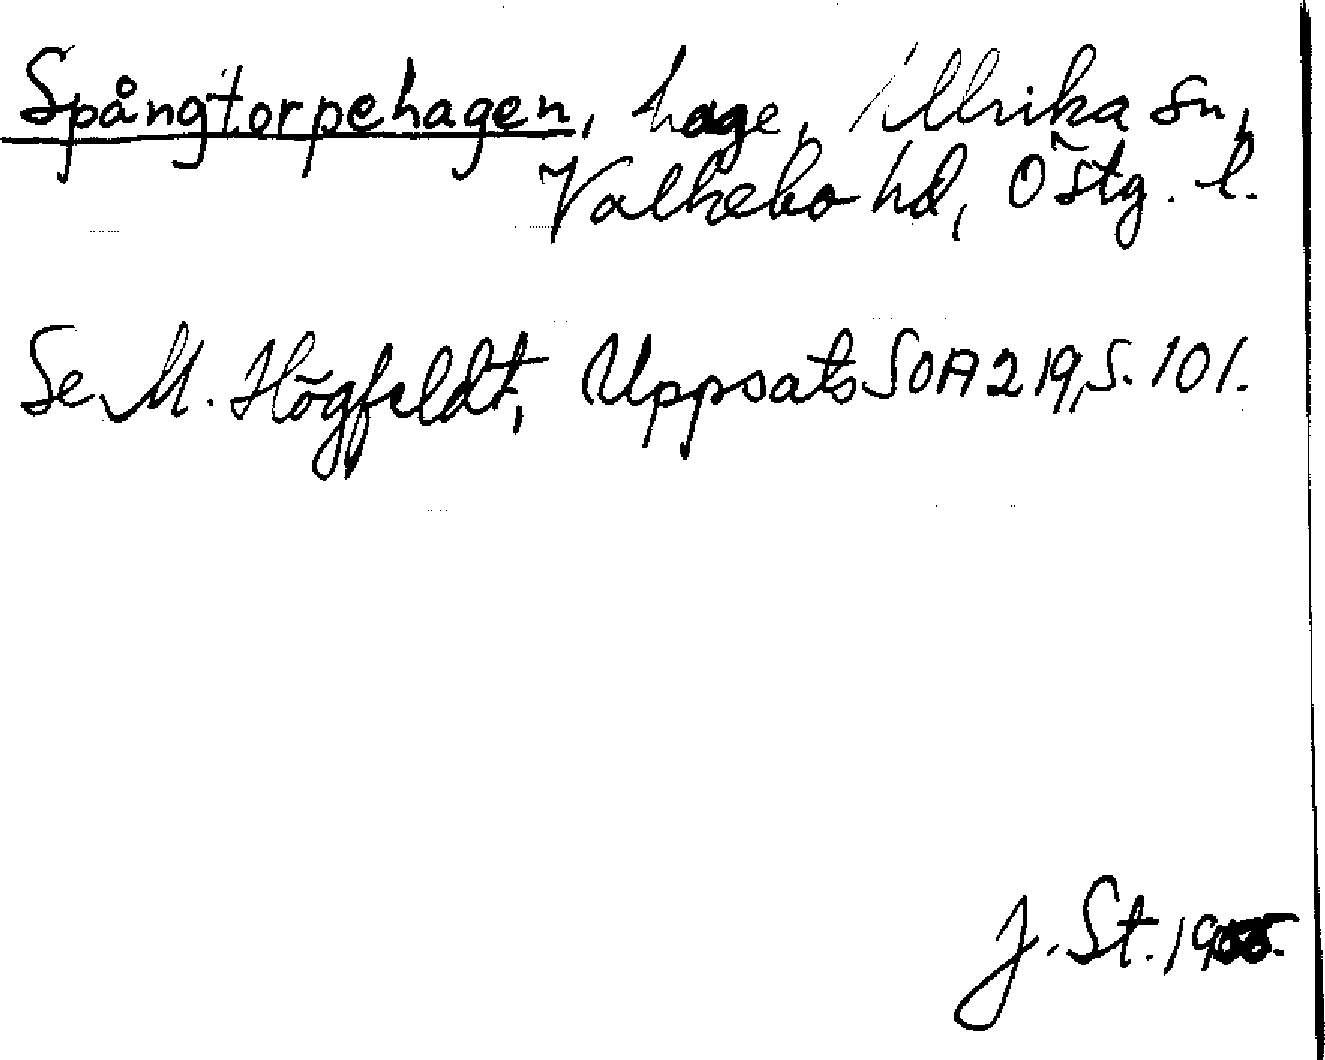 Spångtorpehagen, hage, Ulrika sn,
Valkebo hd, Östg. l.
Se M. Högfeldt, Uppsats SOA 219, S. 101.
J. St.